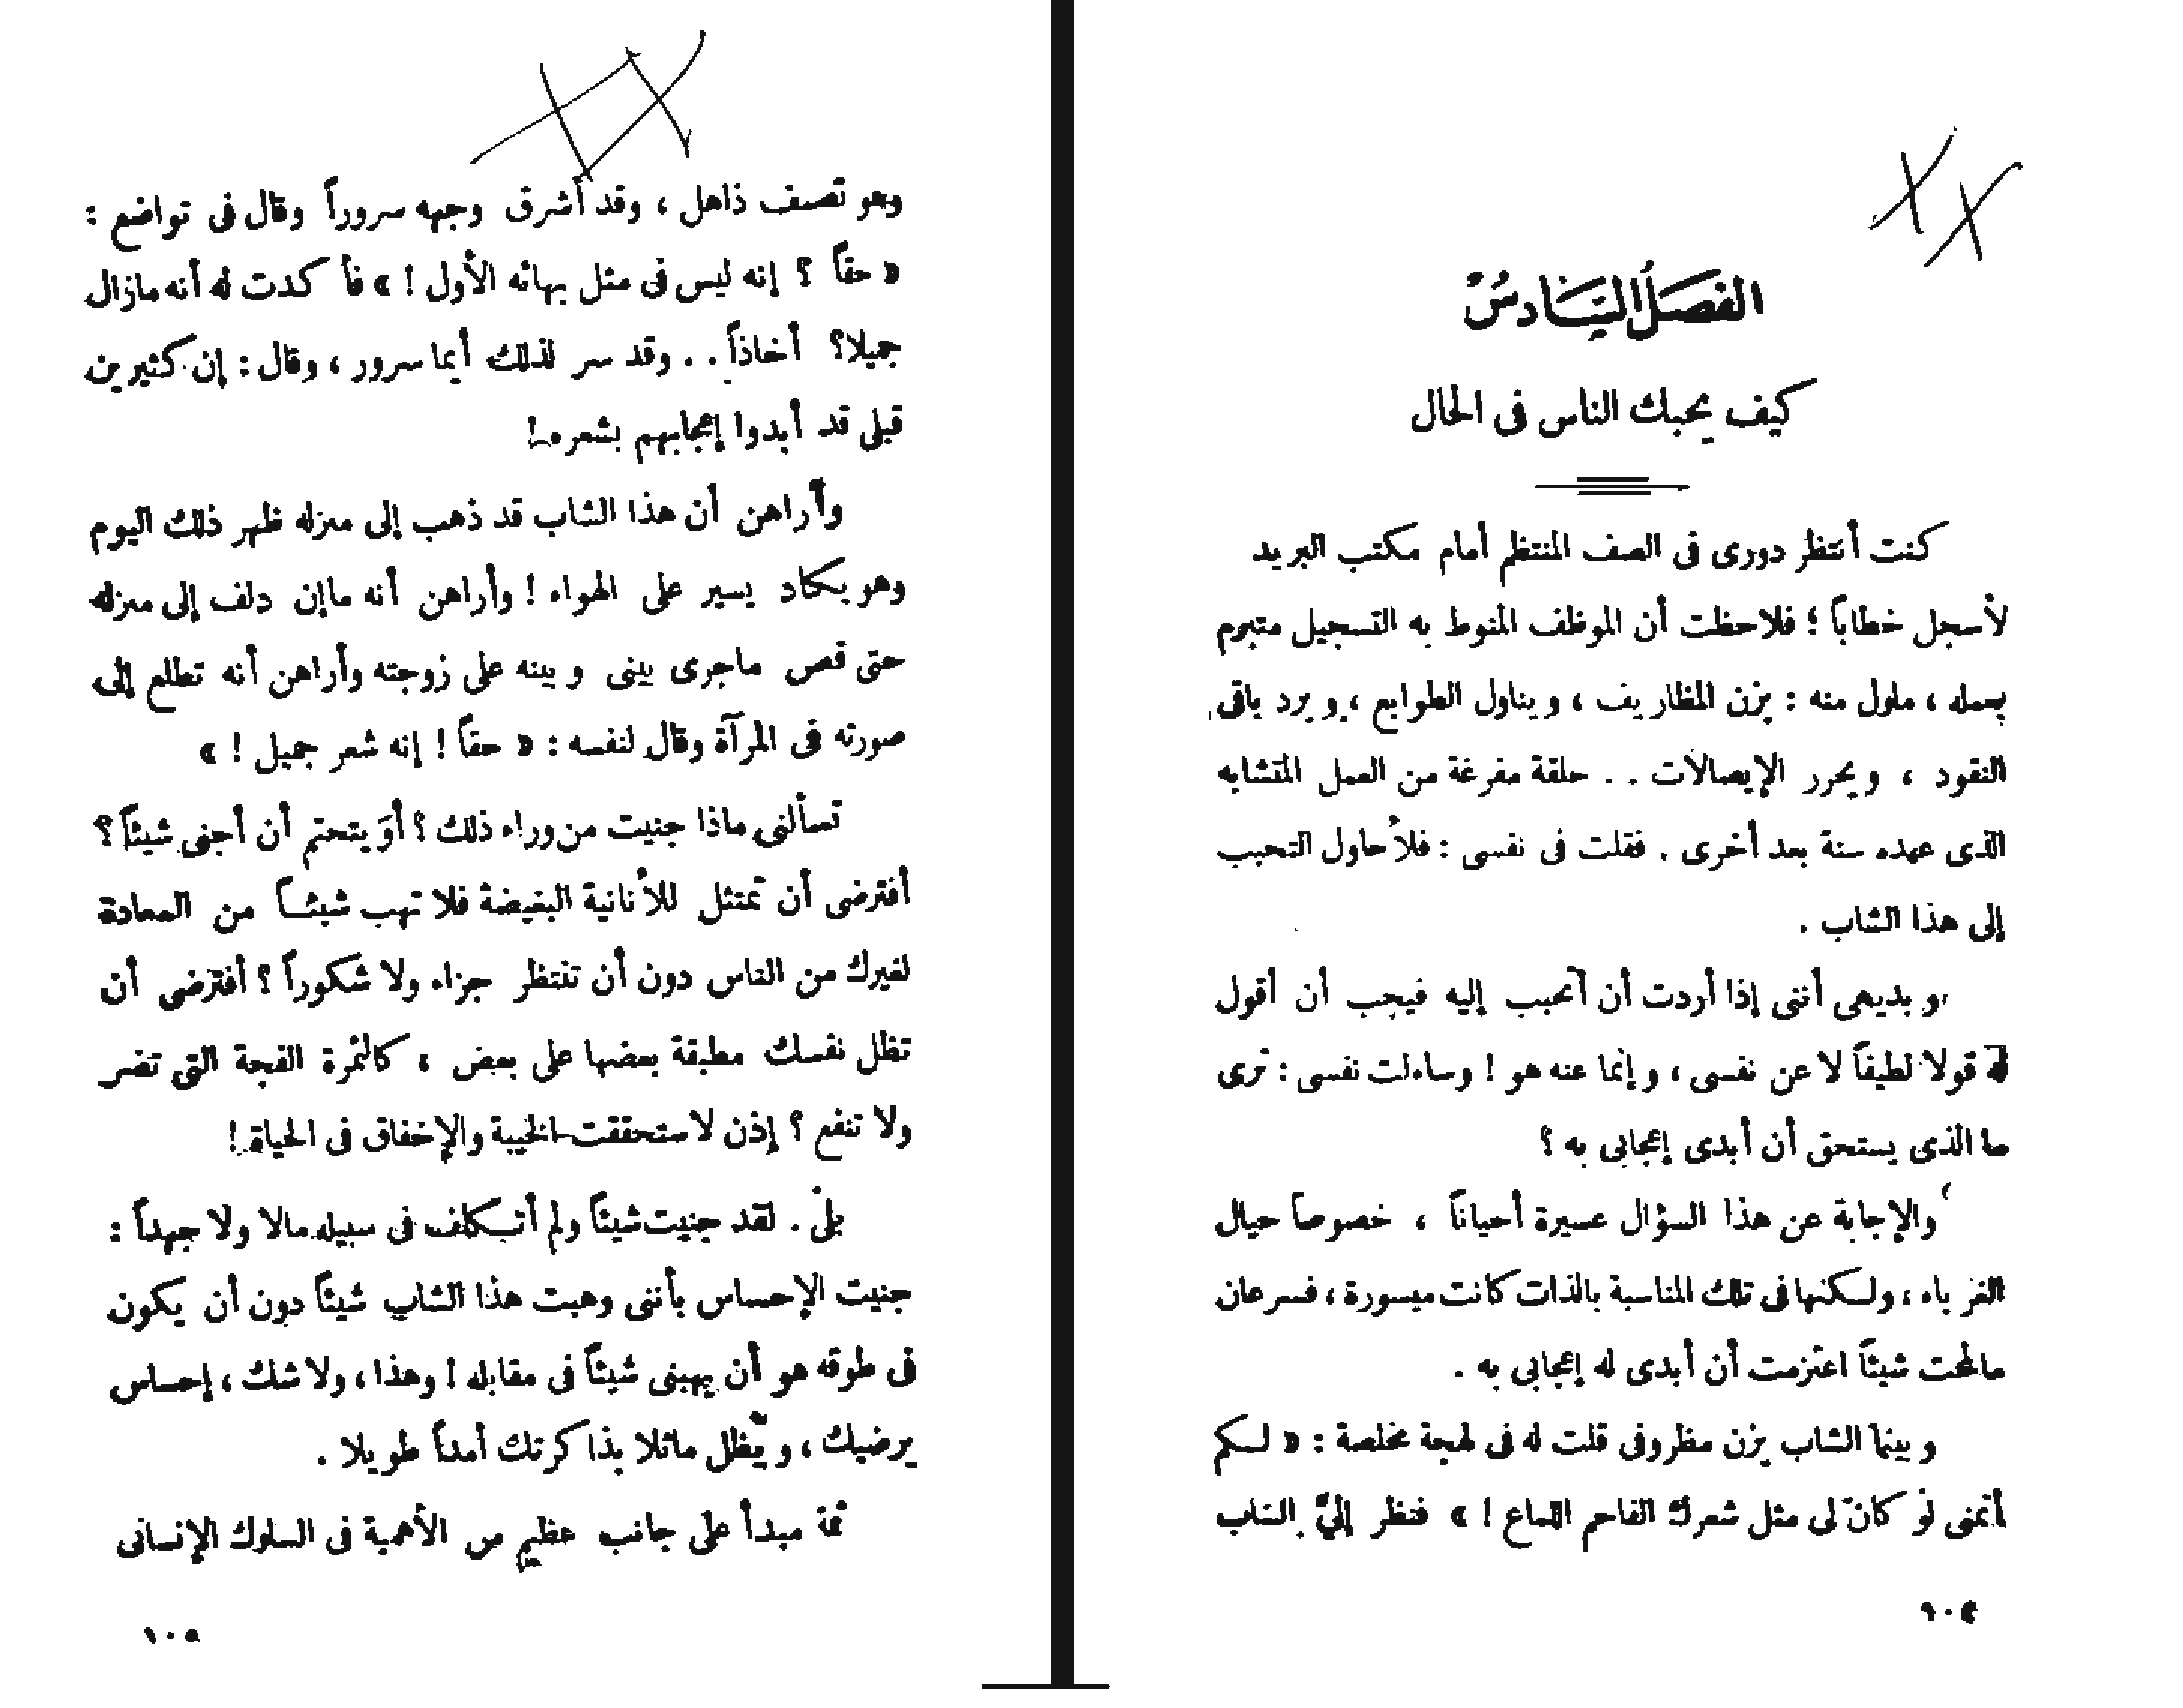 الفصل السادس
كيف يحبك الناس فى الحال
كنت أنتظر دورى فى الصف المنتظم أمام مكتب البريد
لأسجل خطاباً ؛ فلاحظت أن الموظف المنوط به التسجيل متبرم
بعمله ، ملول منه : يزن المظاريف ، ويناول الطوابع ، ويرد باقى
النقود ، ويحرر الإيصالات . . حلقة مفرغة من العمل المتشابه
الذى عهده سنة بعد أخرى . فقلت فى نفسى : فلأحاول التحبب
إلى هذا الشاب .
وبديهى أننى إذا أردت أن أتحبب إليه فيجب أن أقول
له قولا لطيفاً لا عن نفسى ، وإنما عنه هو ! وساءلت نفسى : ترى
ما الذى يستحق أن أبدى إعجابى به ؟
والإجابة عن هذا السؤال عسيرة أحياناً ، خصوصاً حيال
الغرباء ، ولكنها فى تلك المناسبة بالذات كانت ميسورة ، فسرعان
مالمحت شيئاً اعتزمت أن أبدى له إعجابى به .
وبينما الشاب يزن مظروفى قلت له فى لهجة مخلصة : « لكم
أتمنى لو كان لى مثل شعرك الفاحم اللماع ! » فنظر إلىّ الشاب
١٠٤
وهو نصف ذاهل ، وقد أشرق وجهه سروراً وقال فى تواضع :
« حقاً ؟ إنه ليس فى مثل بهائه الأول ! » فأكدت له أنه مازال
جميلا؟ أخاذاً . . وقد سر لذلك أيما سرور ، وقال : إن كثيرين
قبلى قد أبدوا إعجابهم بشعره !
وأراهن أن هذا الشاب قد ذهب إلى منزله ظهر ذلك اليوم
وهو يكاد يسير على الهواء ! وأراهن أنه ماإن دلف إلى منزله
حتى قص ماجرى بينى وبينه على زوجته وأراهن أنه تطلع إلى
صورته فى المرآة وقال لنفسه : « حقاً ! إنه شعر جميل ! »
تسألنى ماذا جنيت من وراء ذلك ؟ أوَ يتحتم أن أجنى شيئاً ؟
أفترضى أن تمتثل للأنانية البغيضة فلا تهب شيئــاً من السعادة
لغيرك من الناس دون أن تنتظر جزاء ولا شكوراً ؟ أفترضى أن
تظل نفسك مطبقة بعضها على بعض ، كالثمرة الفجة التى تضر
ولا تنفع ؟ إذن لاستحققت الخيبة والإخفاق فى الحياة !
بلى . لقد جنيت شيئاً ولم أتكلف فى سبيله مالا ولا جهداً :
جنيت الإحساس بأننى وهبت هذا الشاب شيئاً دون أن يكون
فى طوقه هو أن يهبنى شيئاً فى مقابله ! وهذا ، ولا شك ، إحساس
يرضيك ، ويظل ماثلا بذاكرتك أمداً طويلا .
ثمة مبدأ على جانب عظيم من الأهمية فى السلوك الإنسانى
١٠٥